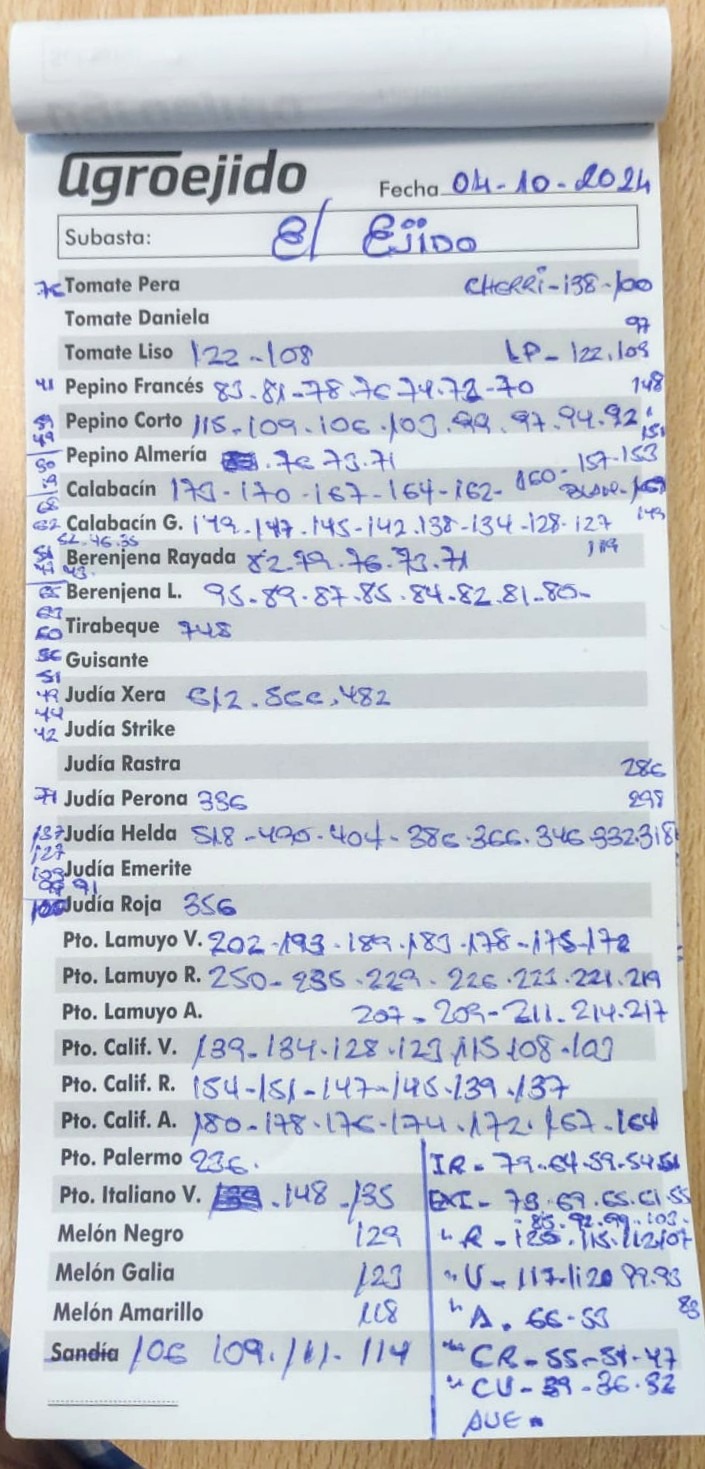 agroejido
Fecha 04-10-2024
Subasta: El Ejido
76 Tomate Pera CHERRI-138-100
Tomate Daniela 97
Tomate Liso 122-108 LP-122.109
41 Pepino Francés 83-81-78.76 74.72-70 148
Pepino Corto 115.109.106.103.99.97.94.92
Pepino Almería .76 73.71 157-153
Calabacín 173-170-167-164-162-160-
62 Calabacín G. 149.147.145-142.138-134-128-127
52.46.35 119
Berenjena Rayada 82.79.76.73.71
Berenjena L. 95-89-87.85.84-82.81-80-
Tirabeque 748
Guisante
Judía Xera 612.566.482
Judía Strike
42
Judía Rastra 286
71 Judía Perona 336 298
137 Judía Helda 518-490-404-386.366.346.332.318
127
109 Judía Emerite
99 91
Judía Roja 356
Pto. Lamuyo V. 202-193.189.183.178-175-172
Pto. Lamuyo R. 250-235-229.226.223.221.219
Pto. Lamuyo A. 207-209-211-214.217
Pto. Calif. V. 139-134.128.123.115.108-103
Pto. Calif. R. 154-151-147-145.139.137
Pto. Calif. A. 180-178.176-174.172.167-164
Pto. Palermo 236. IR-79-64.59-54.51
Pto. Italiano V. .148-135 EXI-73.69.65.61.55
-85.92.99.103-
Melón Negro 129 " R-120.115.112.107
Melón Galia 123 " U-117-112 99.93
Melón Amarillo 118 " A. 66-53 83
Sandía 106 109.111-114 " CR-55-51-47
" CU-39-36-32
AUE-